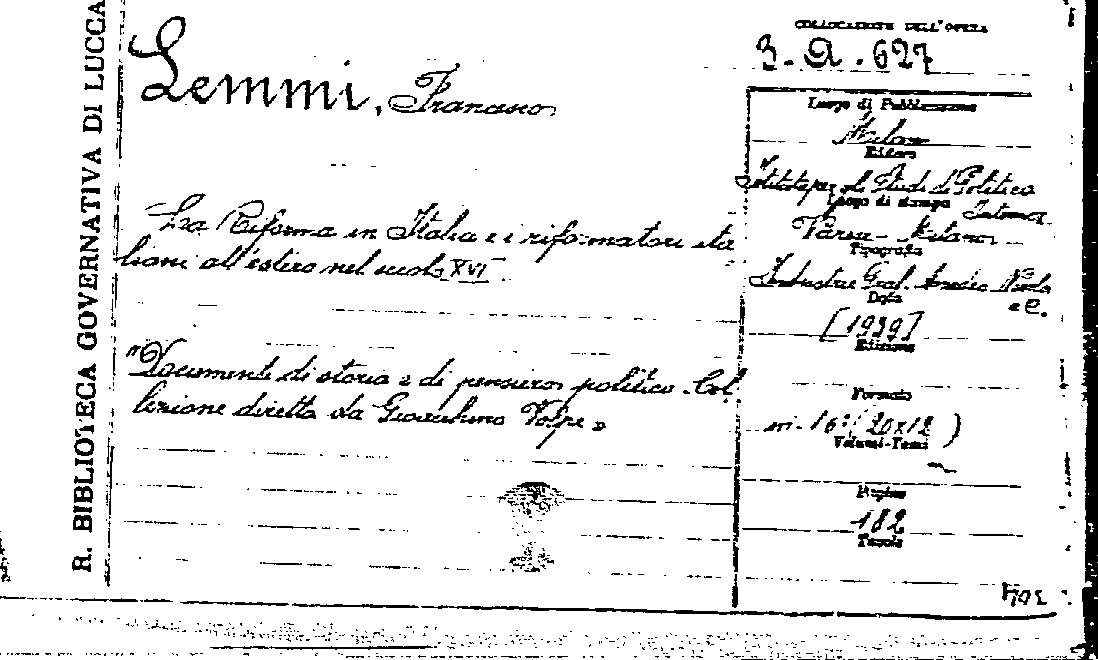 R. BIBLIOTECA GOVERNATIVA DI LUCCA
Lemmi, Francesco
La Riforma in Italia e i riformatori ita
liani all'estero nel secolo XVI
"Documenti di storia e di pensiero politico. Col
lezione diretta da Gioacchino Volpe"
COLLOCAZIONE DELL'OPERA
3. A. 627
Luogo di Pubblicazione
Milano
Editore
Istituto per gli Studi di Politica
Internaz.
Luogo di stampa
Varese - Milano
Tipografia
Industrie Graf. Amedeo Nicola
e C.
Data
[1939]
Edizione
Formato
in-16° (20x12)
Volumi-Tomi
Pagine
182
Tavole